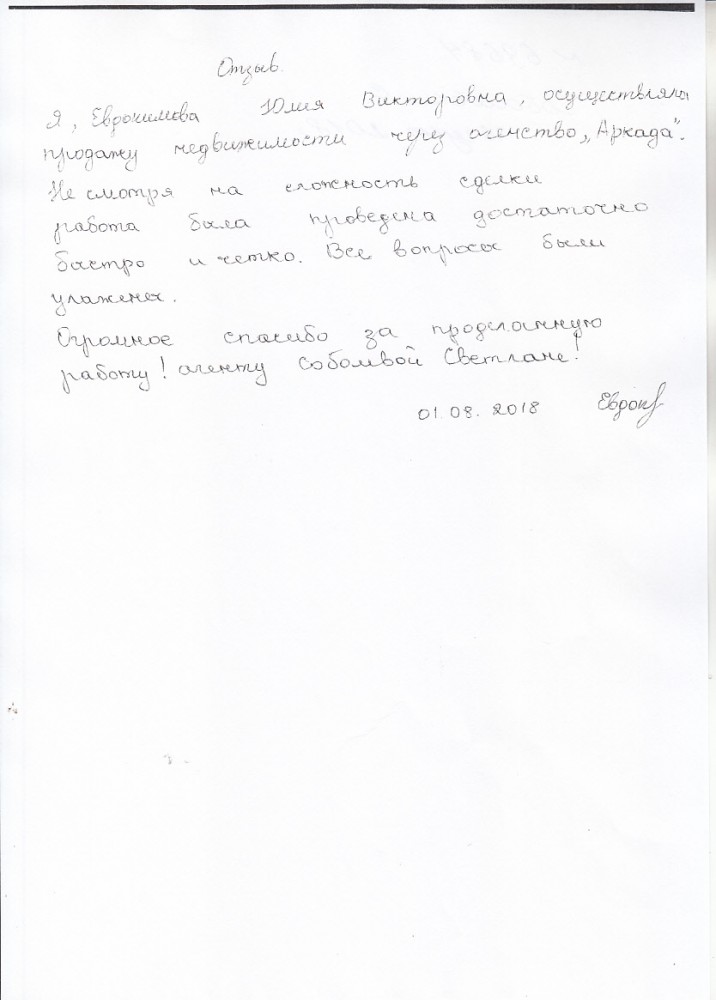 Отзыв.
Я, Евдокимова Юлия Викторовна, осуществляла
продажу недвижимости через агенство „Аркада".
Не смотря на сложность сделки
работа была проведена достаточно
быстро и четко. Все вопросы были
улажены.
Огромное спасибо за проделанную
работу! агенту Светлане!
01.08.2018